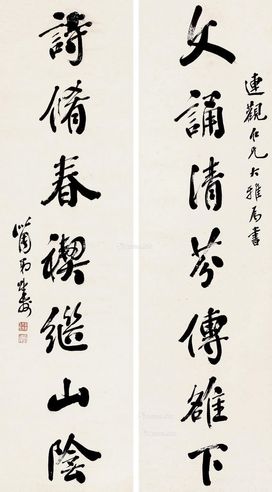 連觀仁兄大雅屬書
文誦清芬傳雒下
詩脩春禊繼山陰